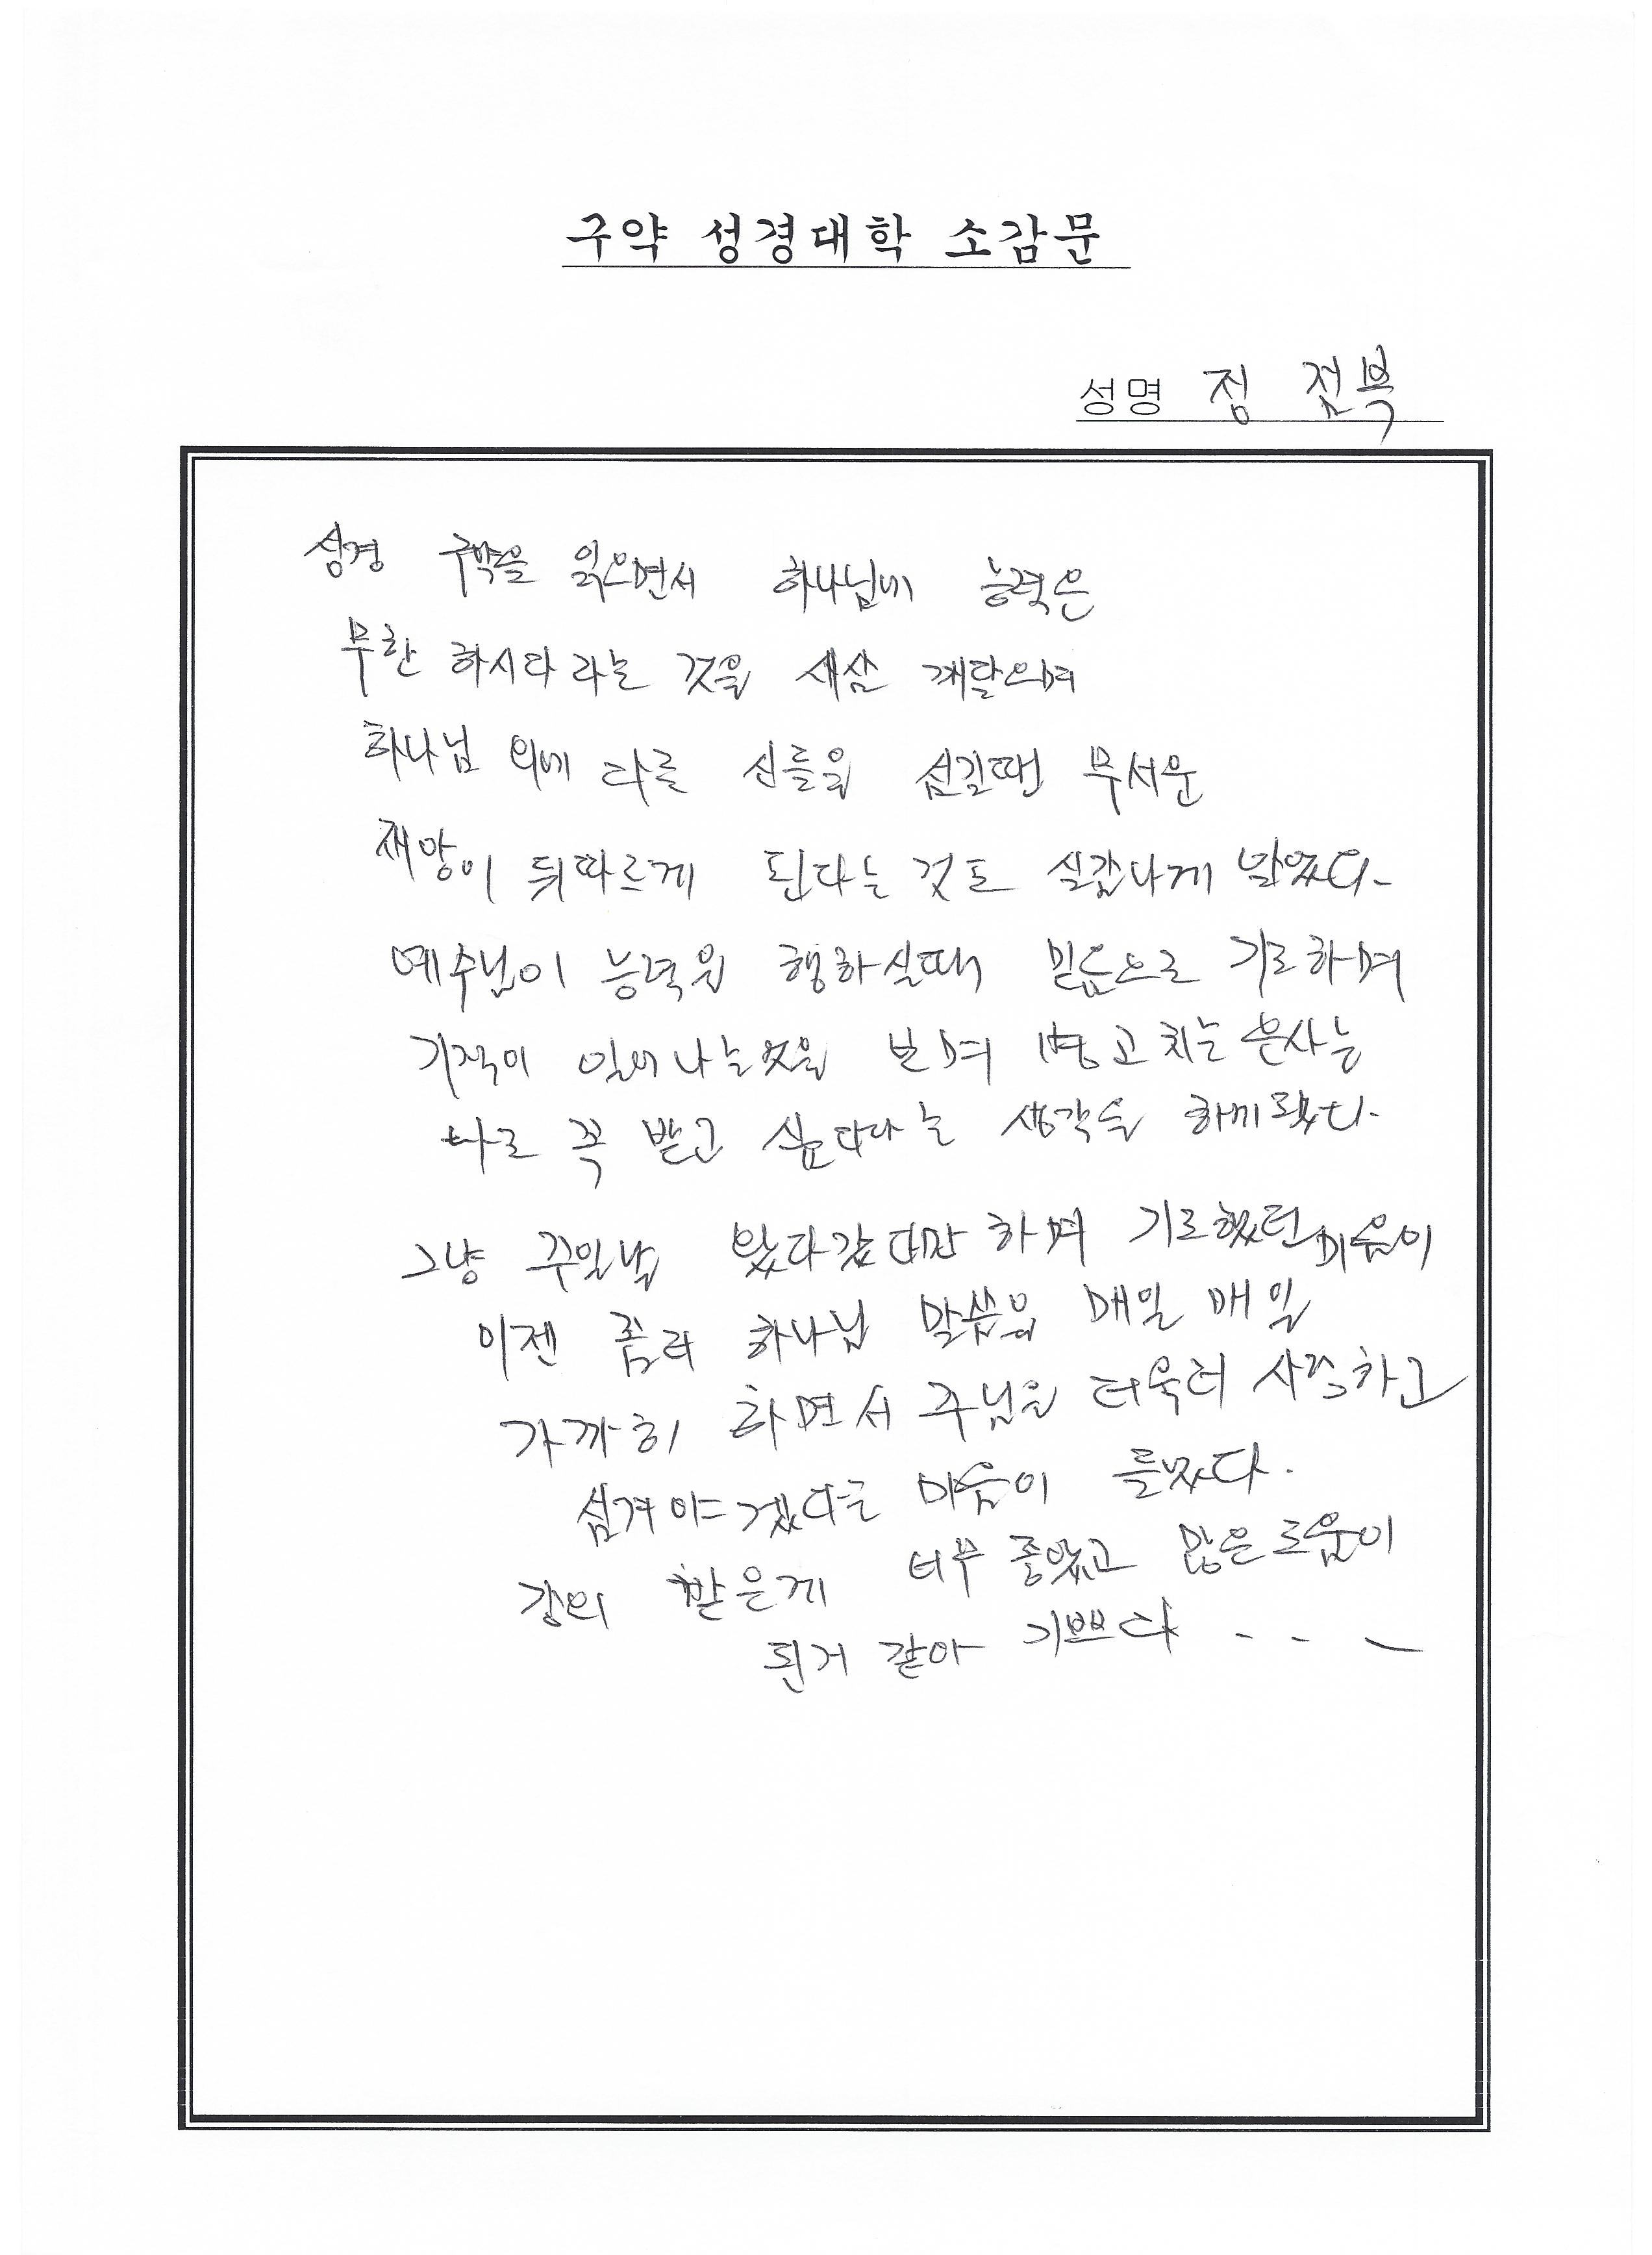 구약 성경대학 소감문
성명 정 점복
성경 구약을 읽으면서 하나님에 능력은
무한 하시다 라는 것을 새삼 깨달으며
하나님 외에 다른 신들을 섬길땐 무서운
재앙이 뒤따르게 된다는 것도 실감나게 알았다.
예수님이 능력을 행하실때 믿음으로 기도하며
기적이 일어나는것을 보며 병고치는 은사는
나도 꼭 받고 싶다라는 생각을 하게되었다.
그냥 주일날 왔다갔다만 하며 기도했던 마음이
이젠 좀더 하나님 말씀을 매일 매일
가까히 하면서 주님을 더욱더 사랑하고
섬겨야 겠다는 마음이 들었다.
강의 받은게 너무 좋았고 많은 도움이
된거 같아 기쁘다 - - ~